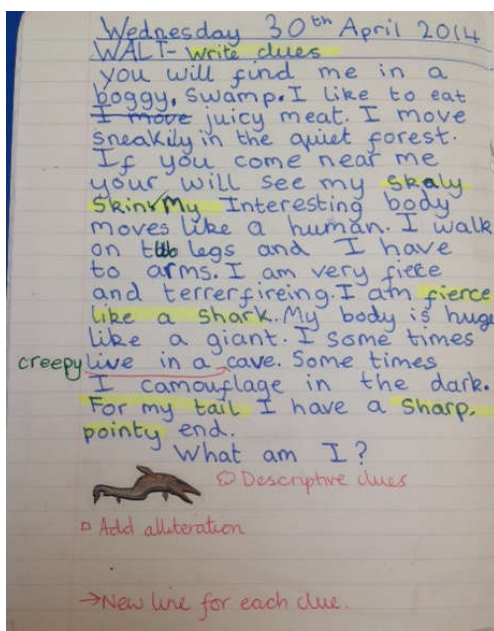 Wednesday 30th April 2014
WALT- write clues
you will find me in a
boggy, swamp. I like to eat
I move juicy meat. I move
sneakily in the quiet forest.
If you come near me
your will see my skaly
skin. My Interesting body
moves like a human. I walk
on two legs and I have
to arms. I am very fiece
and terrerfireing. I am fierce
like a shark. My body is huge
like a giant. I some times
creepy live in a cave. Some times
I camouflage in the dark.
For my tail I have a sharp,
pointy end.
What am I?
Descriptive clues
Add alliteration
→New line for each clue.